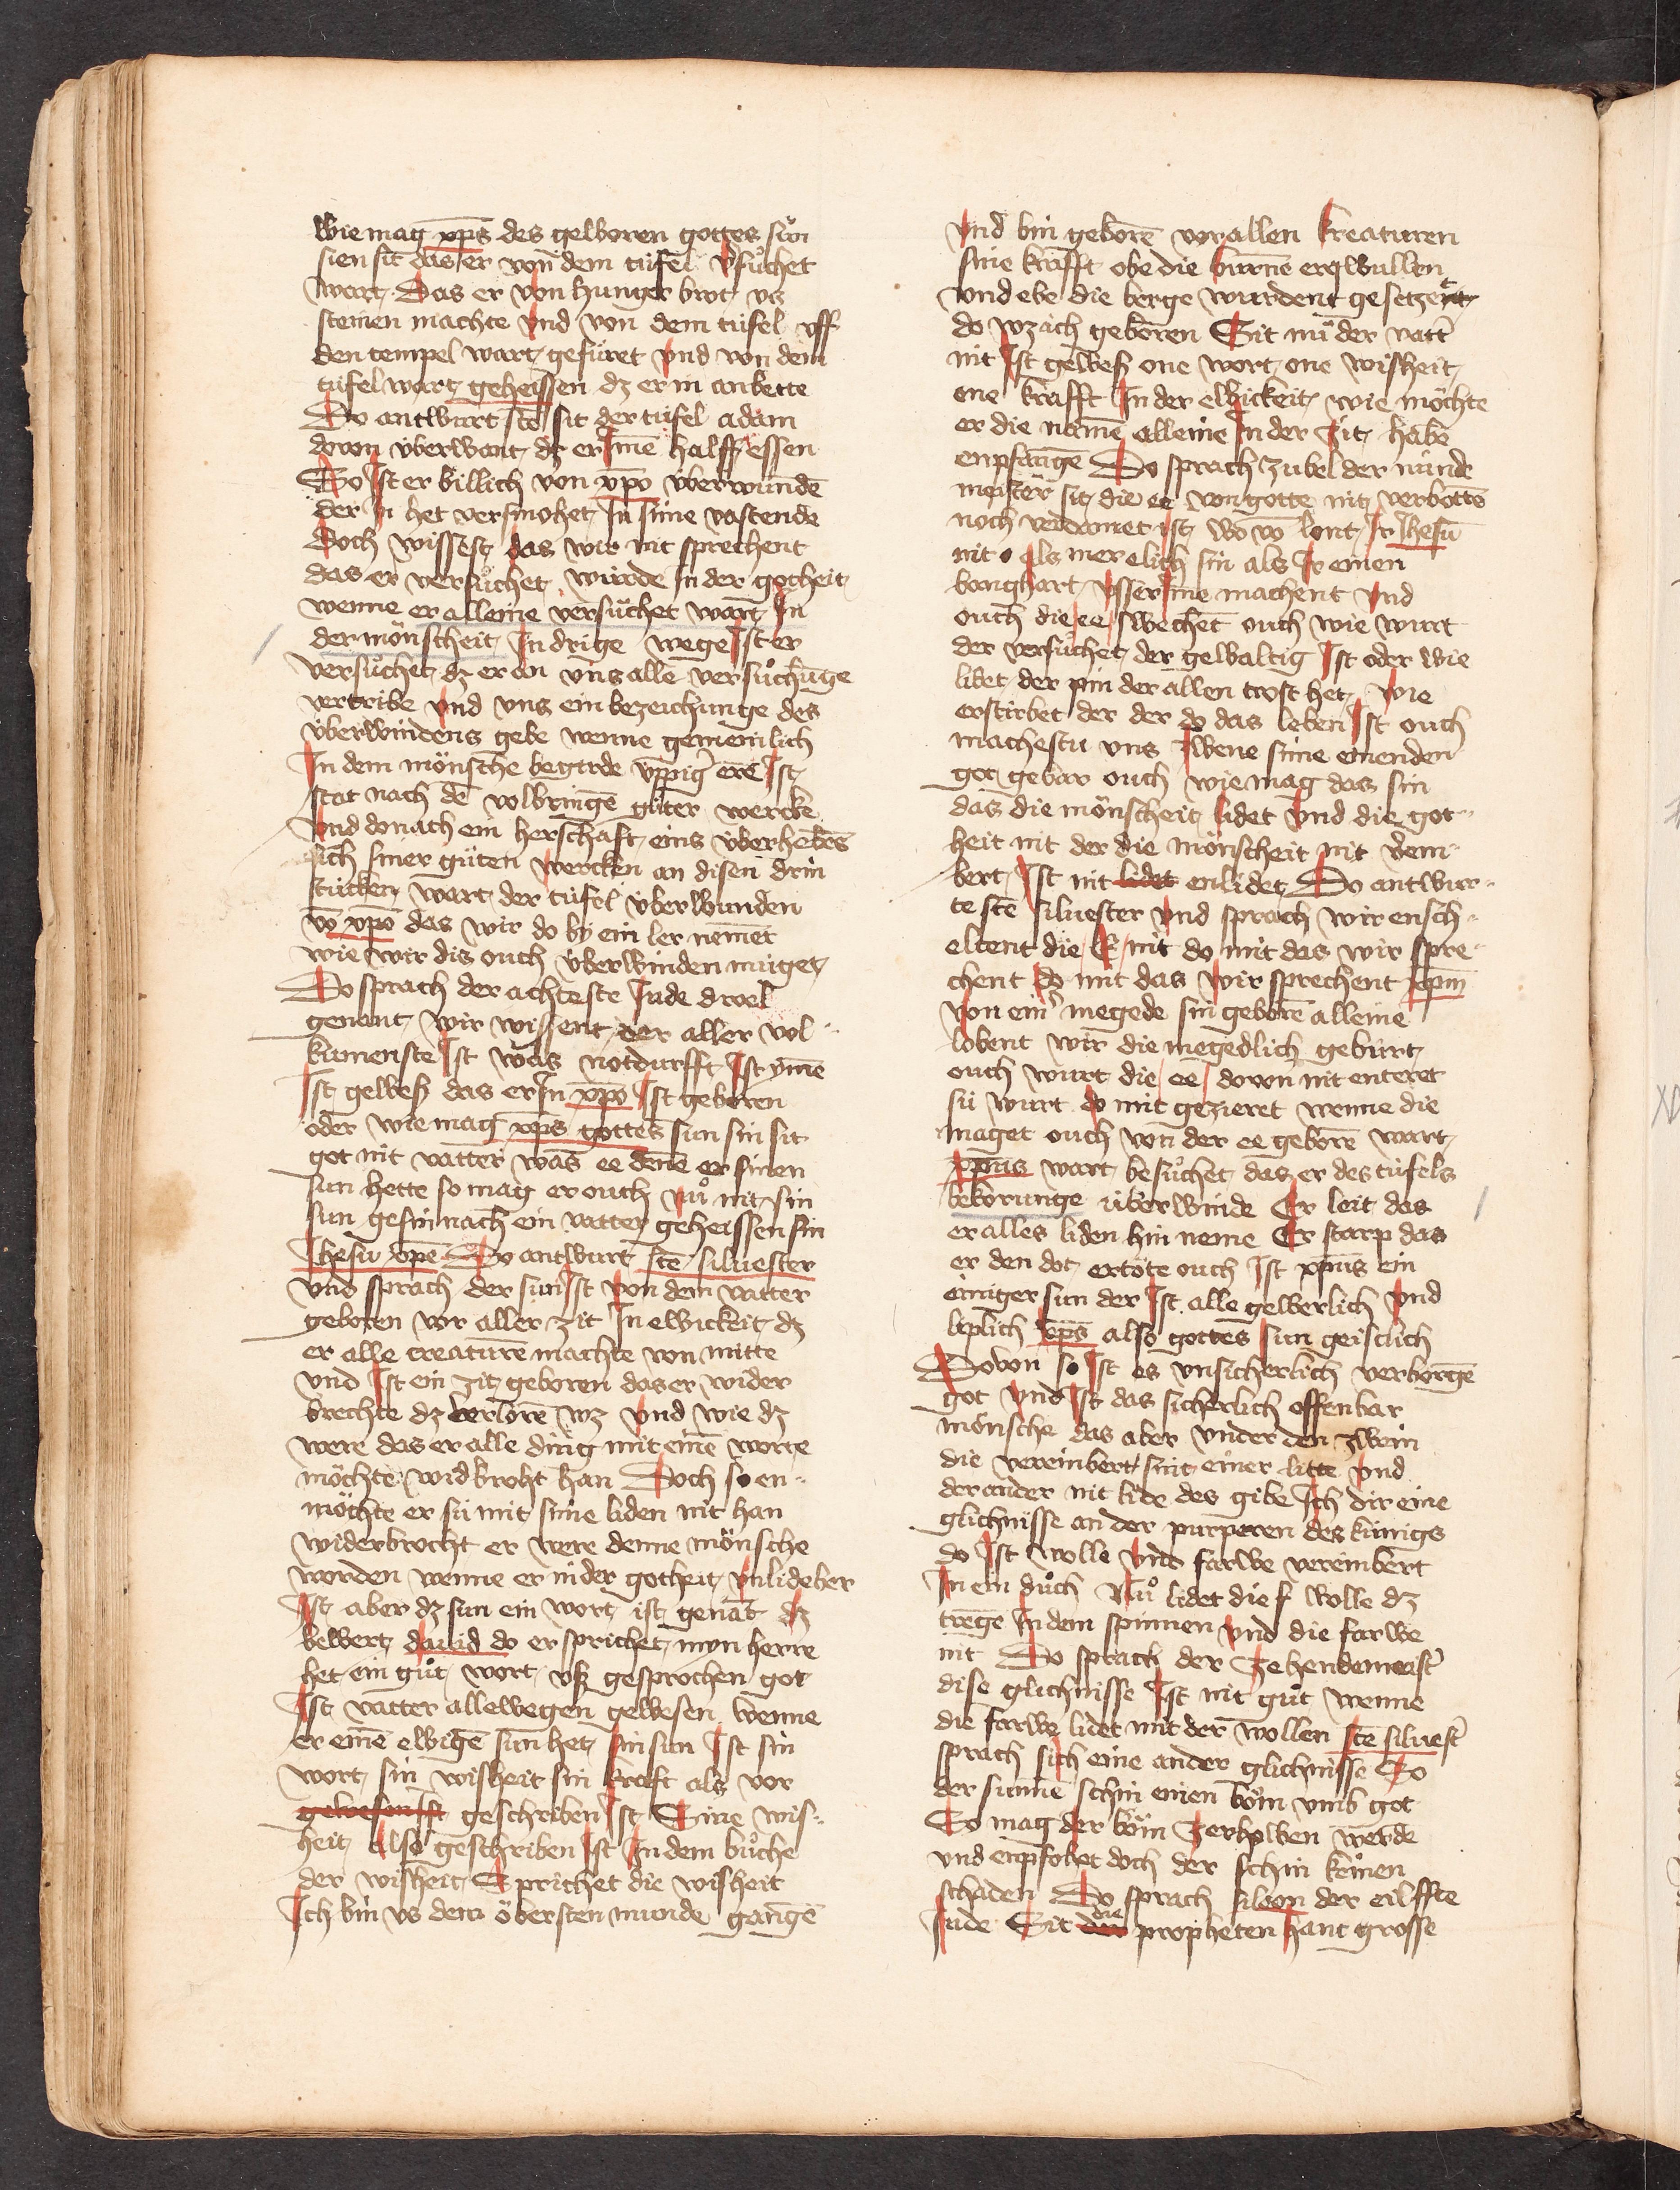 wie mag xp̄s des gelworen gottes sün
sien sit das er von dem tüfel v̾sůchet
wart Das er von hunger brot vs
steinen machte vnd von dem tüfel vff
den tempel wart gefüret vnd von dem
tüfel wart geheissen dz er in anbette
Do antwurt stē sit der tüfel adam
dovon überwant dz er Imē halff essen
So Ist er billich von xp̄o überwundē
der In het versmohet In sime vastende
Doch wissest das wir nit sprechent
das er versůchet würde In der gotheit
wenne er alleine versůchet wart In
der mönscheit In drige wege Ist er
versůchet dz er an vns alle versůchūge
vertribe vnd vns ein bezeichunge des
überwindens gebe wenne gemeinlich
In dem mönschē begirde üppig̾ ere Ist
stat nach dē volbringē gůter wercke
vnd donach ein herschaft eins überhebēs
sich siner gůten wercken an disen drin
stücken wart der tüfel überwunden
vō xp̄o das wir do by ein ler nement
wie wir dis ouch überwinden müget
Do sprach der achteste Jude droel
genant wir wissent der aller vol-
kumenste Ist was notdurfft Ist ymē
Ist gelwesz das er In xp̄o Ist geboren
oder wie mag xp̄s gottes sun sin sit
got nit vatter was ee denē er sinen
sun hette so mag er ouch nů nit sin
sun gesin nach ein vatter geheissen sin
Jhesu xp̄e Do antwurt stē siluester
vnd sprach der sun Ist von dem vatter
geboren vor aller zit In ewickeit dz
er alle creaturē machte von mitte
vnd Ist ein zit geboren das er wider
brechte dz verlorē wz vnd wie dz
were das er alle ding mit eimē worte
möchte widbroht han Doch so en-
möchte er sü mit sime liden nit han
widerbrocht er were denne mönsche
worden wenne er in der gotheit vnlideber
Ist aber dz sun ein wort ist genāt dz
bewert dauid do er sprichet myn herre
het ein gůt wort vsz gesprochen got
Ist vatter allewegen gewesen wenne
er eimē ewigē sun het sin sun Ist sin
wort sin wisheit sin kraft als vor
gewesen Ist geschriben Ist Sine wis-
heit also geschriben Ist In dem bůche
der wisheit Sprichet die wisheit
Ich bin vs dem öbersten munde gangē
vnd bin geborē vor allen kreaturen
sine krafft obe die burnē erqwullen
vnd ebe die berge wurdent gesetzet
do wz ich geboren Sit nů der vatt̾
nit Ist gelwesz one wort one wisheit
one krafft In der ewickeit wie möchte
er die namē alleine In der zit habē
enpfangē Do sprach zubel der nünde
meister sit die ee von gotte nit verbottē
noch verdamet ist wo vō lont Ir Jhesū
nit als mer elich sin als Ir einen
banghart vsser Ime machent vnd
ouch die ee swechet ouch wie wurt
der versůchet der gelwaltig Ist oder wie
lidet der pin der allen trost het wie
erstirbet der der do das leben Ist ouch
machestu vns zwene sine einenden
got gebar ouch wie mag das sin
das die mönscheit lidet vnd die got-
heit nit der die mönscheit mit v̾ein-
bert Ist nit lidet enlidet Do antwur-
te stē siluester vnd sprach wir ensch-
eltent die E nit do mit das wir spre-
chent do mit das wir sprechent xp̄m
von ein̾ megede sin geborē alleine
lobent wir die megedlich geburt
ouch wurt die ee dovon nit enteret
sü wurt do mit gezieret wenne die
maget ouch von der ee geborē wart
xp̄us wart besůchet das er des tüfels
bekorunge überwinde Er leit das
er alles liden hin neme Er starp das
er den dot ertöte ouch Ist xp̄us ein
einiger sun der Ist alle gelwerlich vnd
liplich xp̄s also gottes sun geistlich
Dovon so Ist es vnsicherlich verborgē
got vnd Ist das sicherlich offenbar
mönsche das aber vnder den zwein
die vereinbert sint einer litte vnd
der ander nit lide des gibe Ich dir eine
glichnisse an der purperen des künigs
do Ist wolle vnd farwe vereinbert
In ein důch Nů lidet die f wolle dz
tregē In dem spinnen vnd die farwe
nit Do sprach der zehende meist̾
dise glichnisse Ist nit gůt wenne
die farwe lidet mit der wollen stē siluest̾
sprach sich eine ander glichnisse So
der sunnē schin einen boům vmb got
So mag der boům zerhowen werdē
vnd enpfohet doch der schin keinen
schaden Do sprach sileon der eilffte
Jude Sit die propheten hant grosse